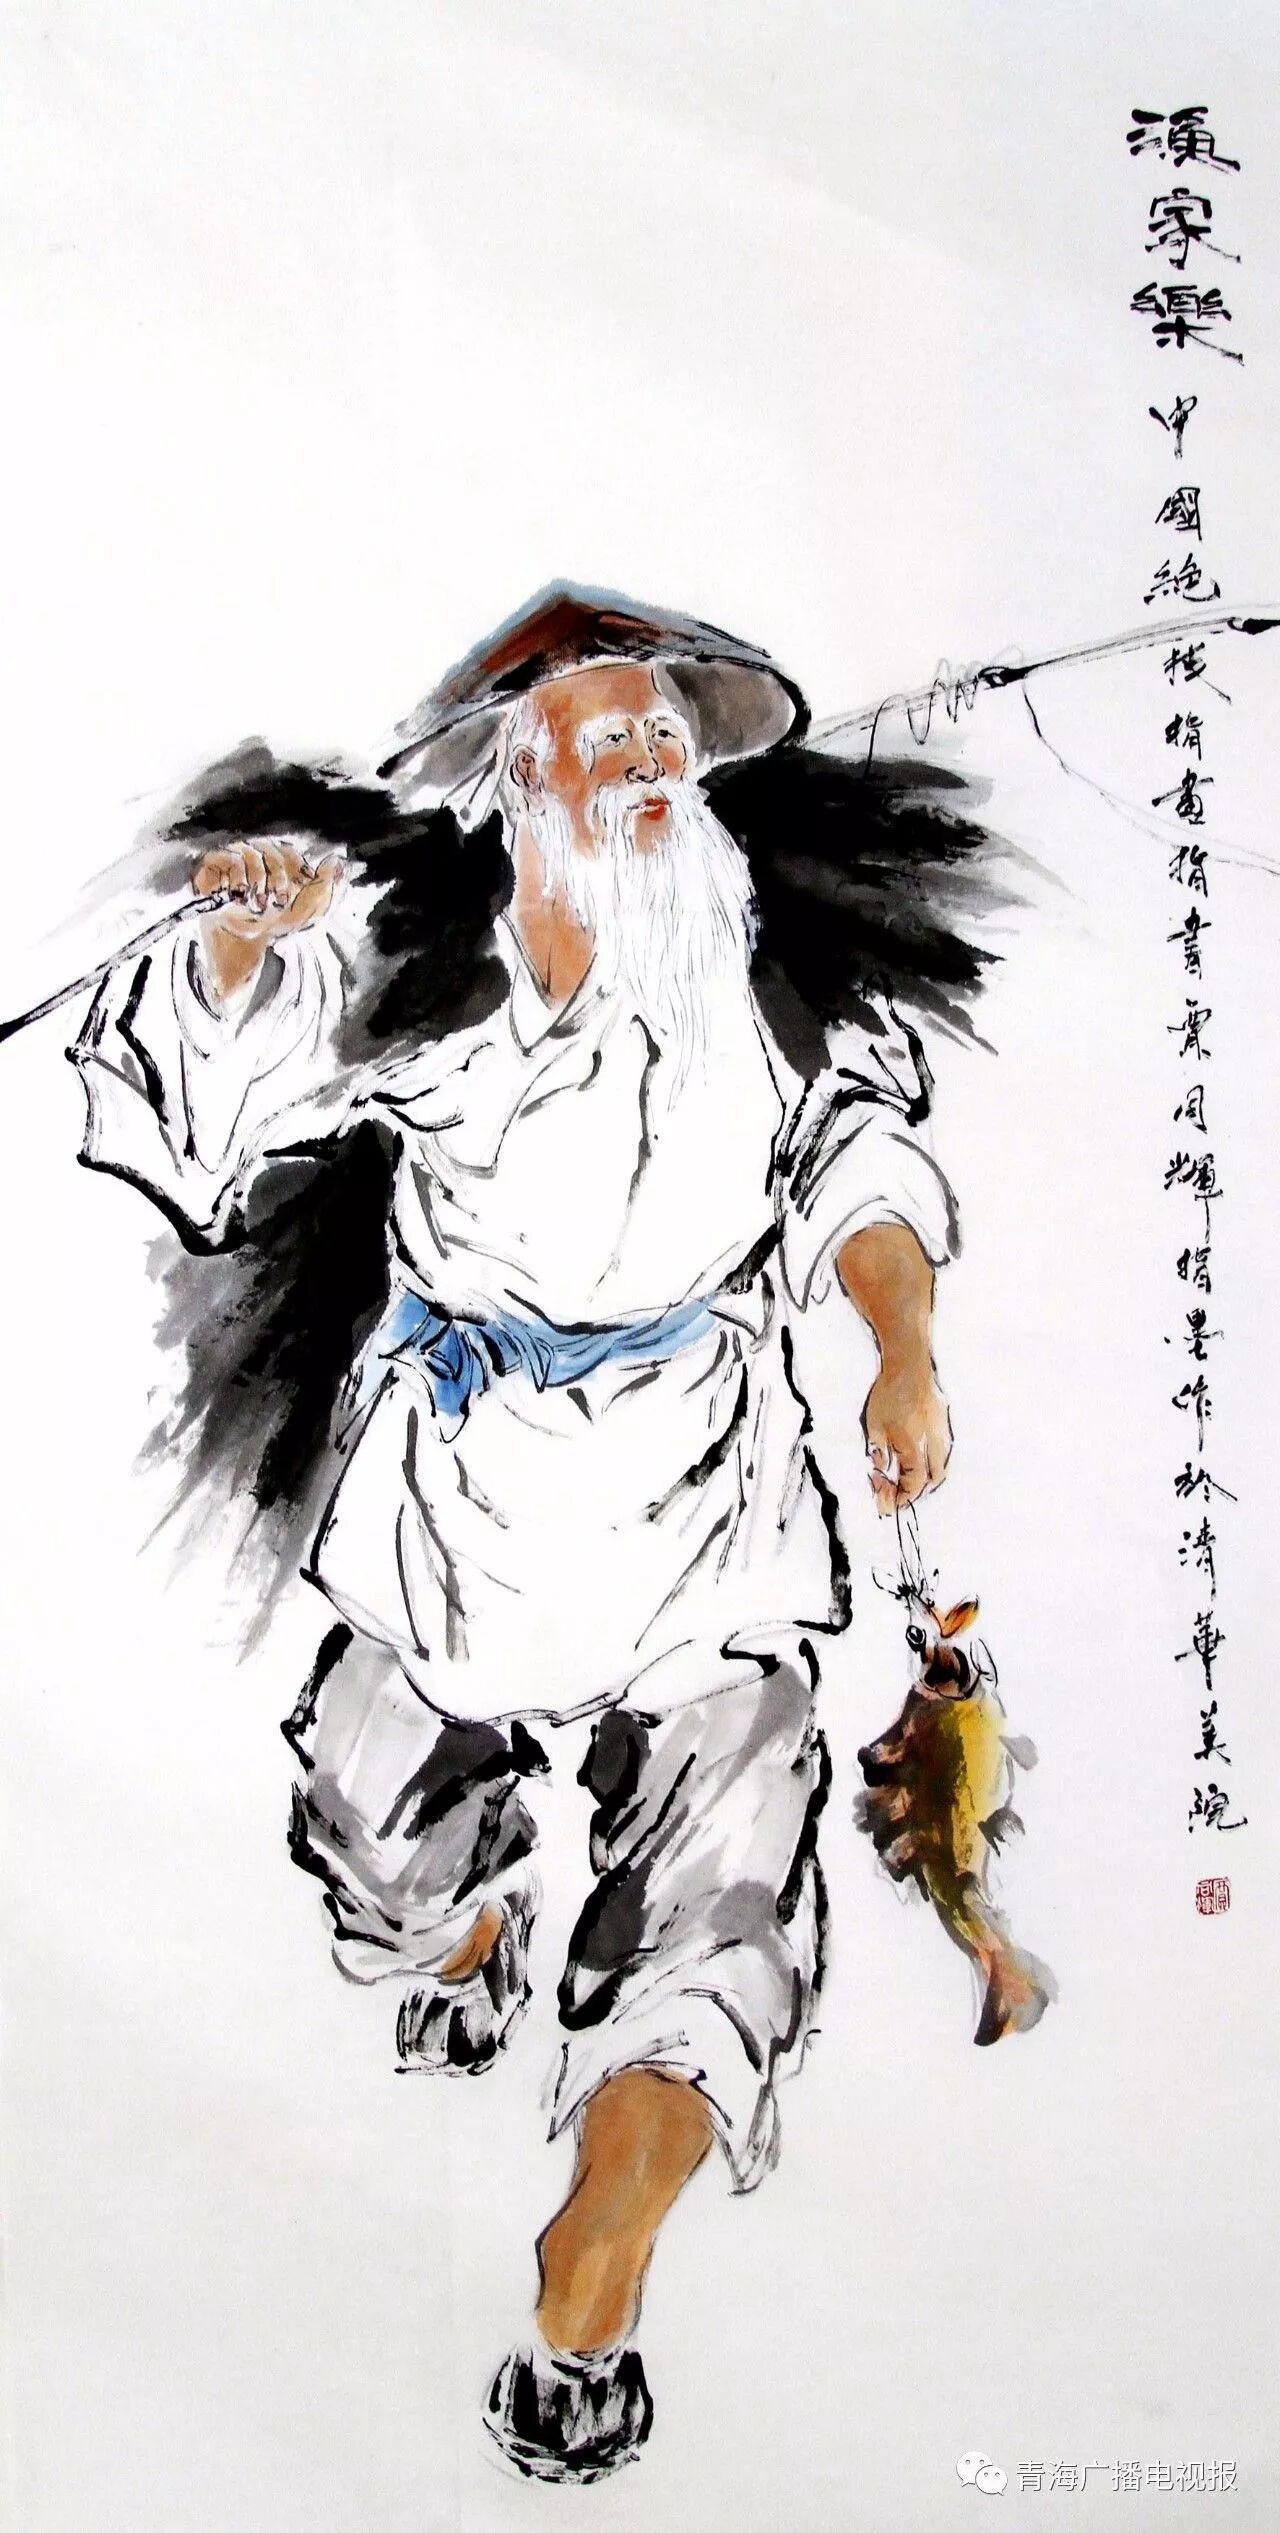 漁家樂 中國絶技指畫指書賈同輝指墨作於清華美院
青海广播电视报